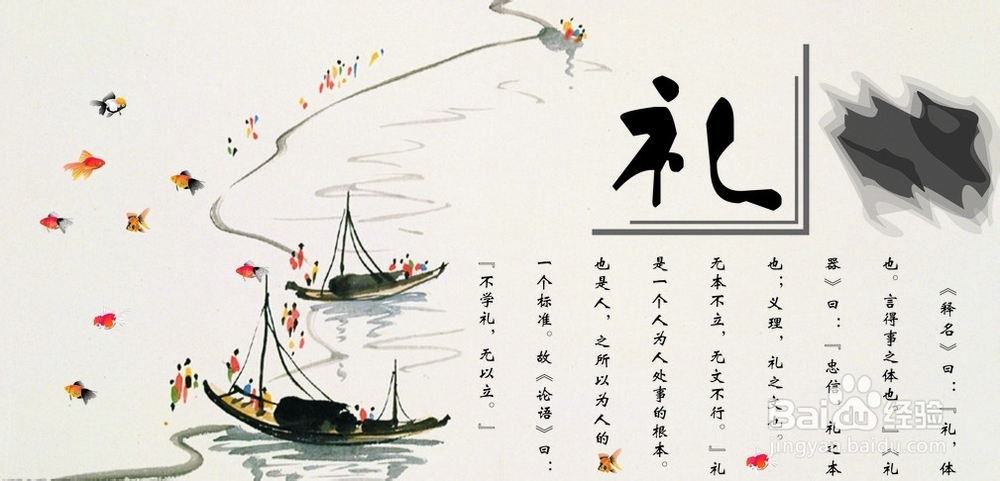 礼
《释名》曰：『礼，体
也。言得事之体也』《礼
器》曰：『忠信，礼之本
也；义理，礼之文也。
无本不立，无文不行。』礼
是一个人为人处事的根本。
也是人，之所以为人的
一个标准。故《论语》曰：
『不学礼，无以立。』
Baidu经验
jingyan.baidu.com